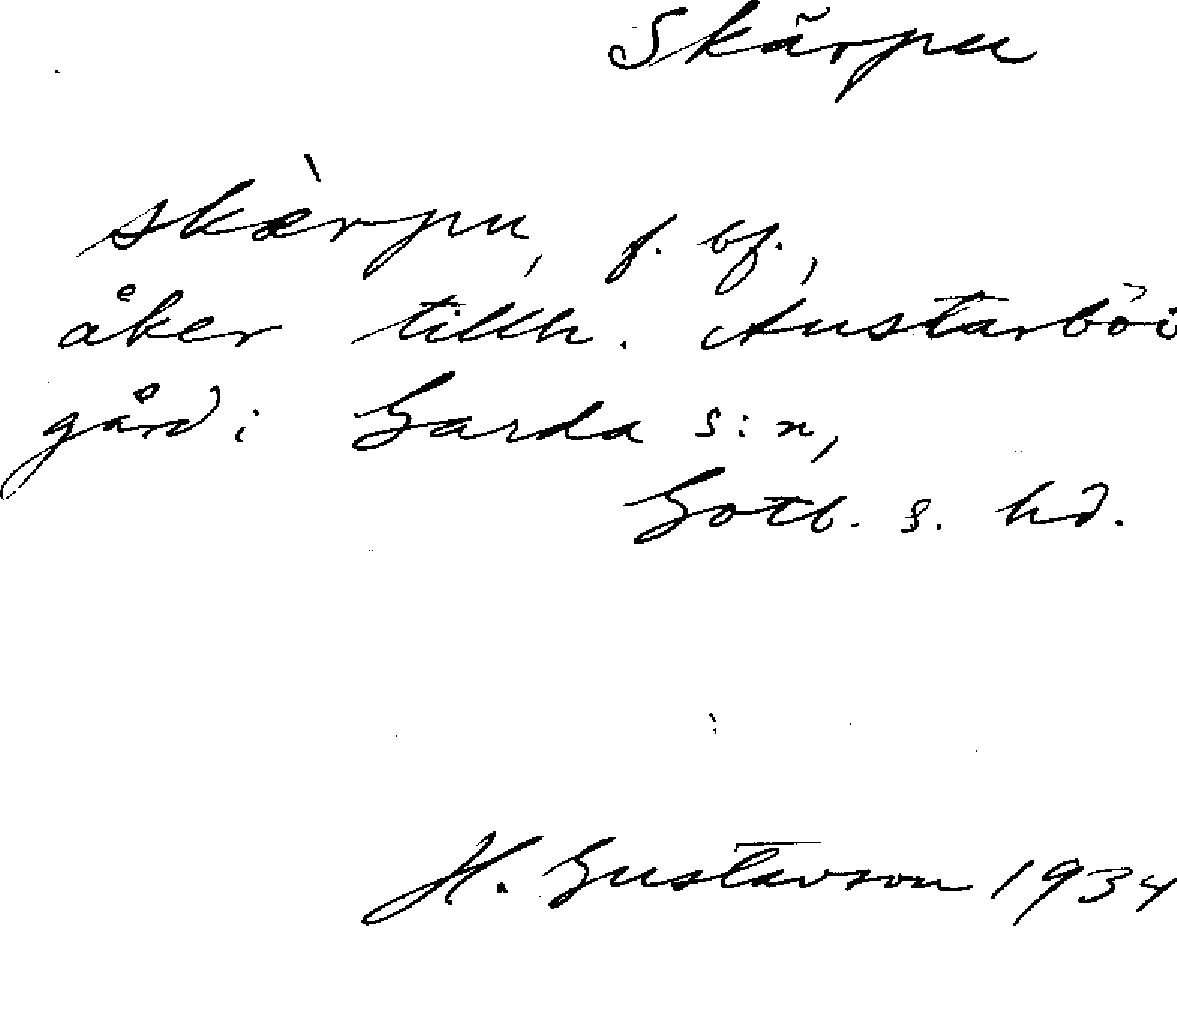 Skärpu
skæ̀rpu, f. bf.,
åker tillh. Austarböi
gård i Garda s:n,
Gotl. s. hd.
H. Gustavson 1934